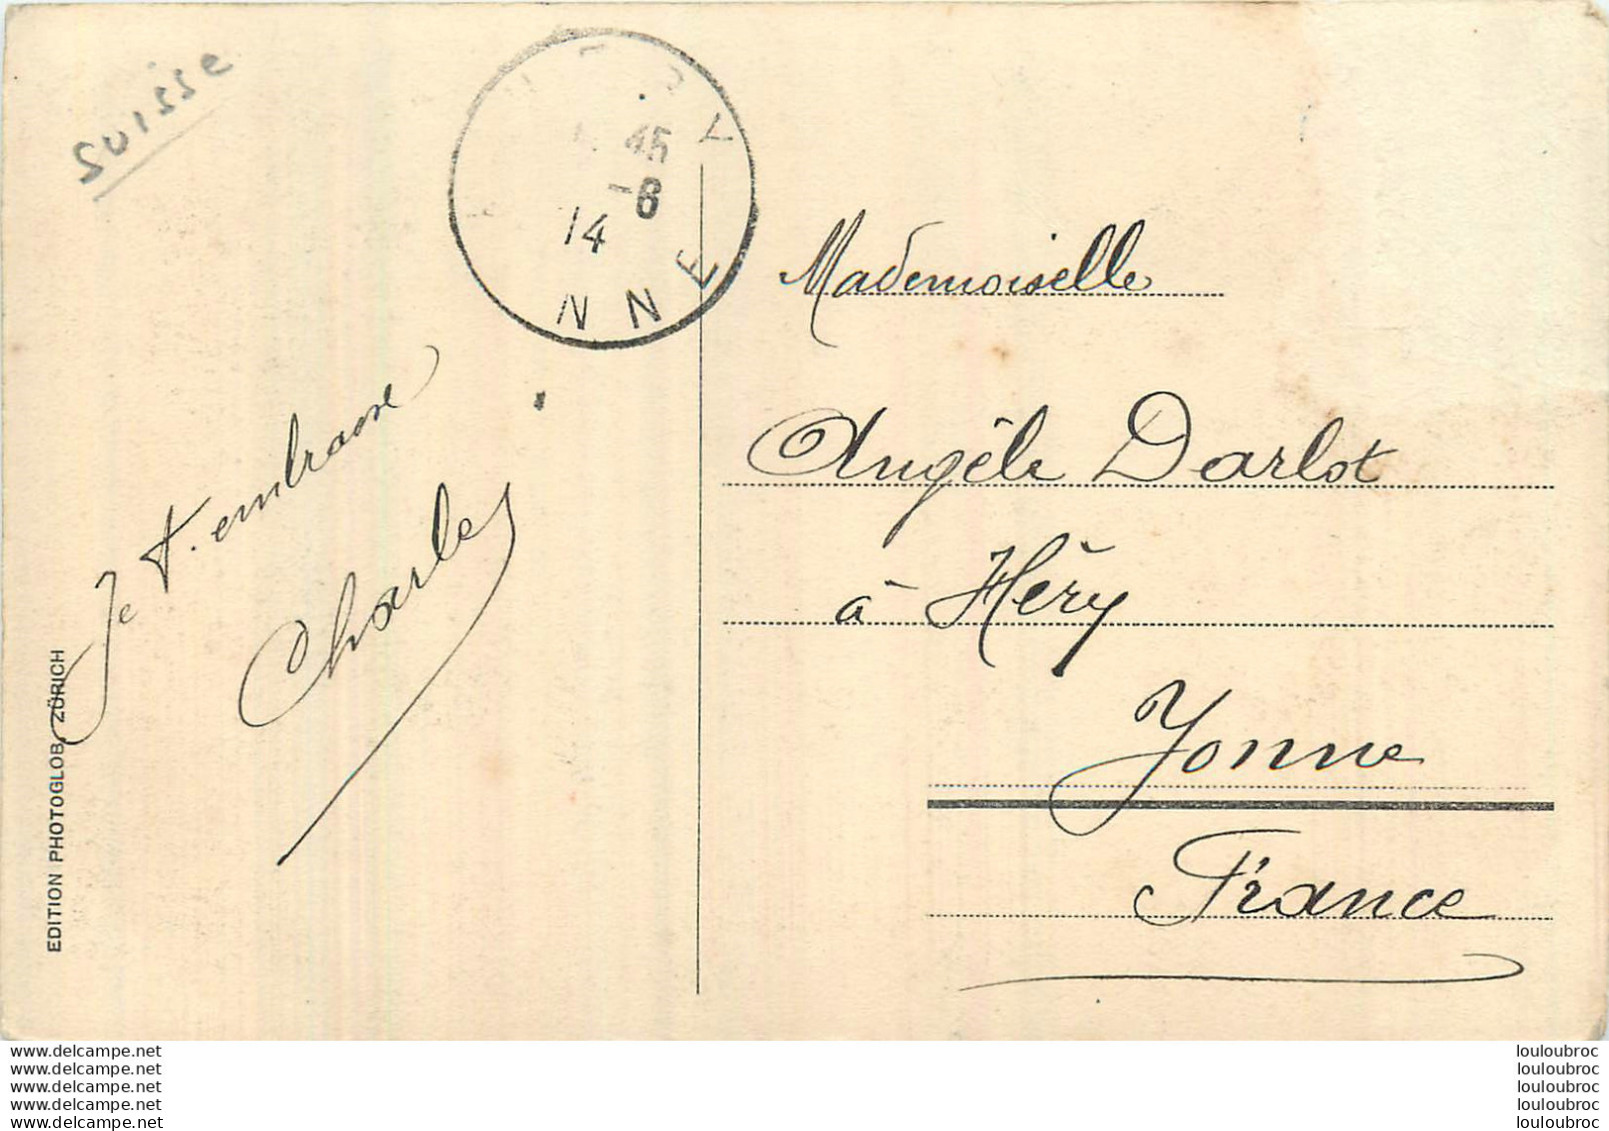 suisse
45
-6
14
NNE
Je t. embrasse
Charles
EDITION PHOTOGLOB, ZÜRICH
Mademoiselle
Angèle Darlot
à Héry
Yonne
France
www.delcampe.net
www.delcampe.net
www.delcampe.net
www.delcampe.net
www.delcampe.net
louloubroc
louloubroc
louloubroc
louloubroc
louloubroc